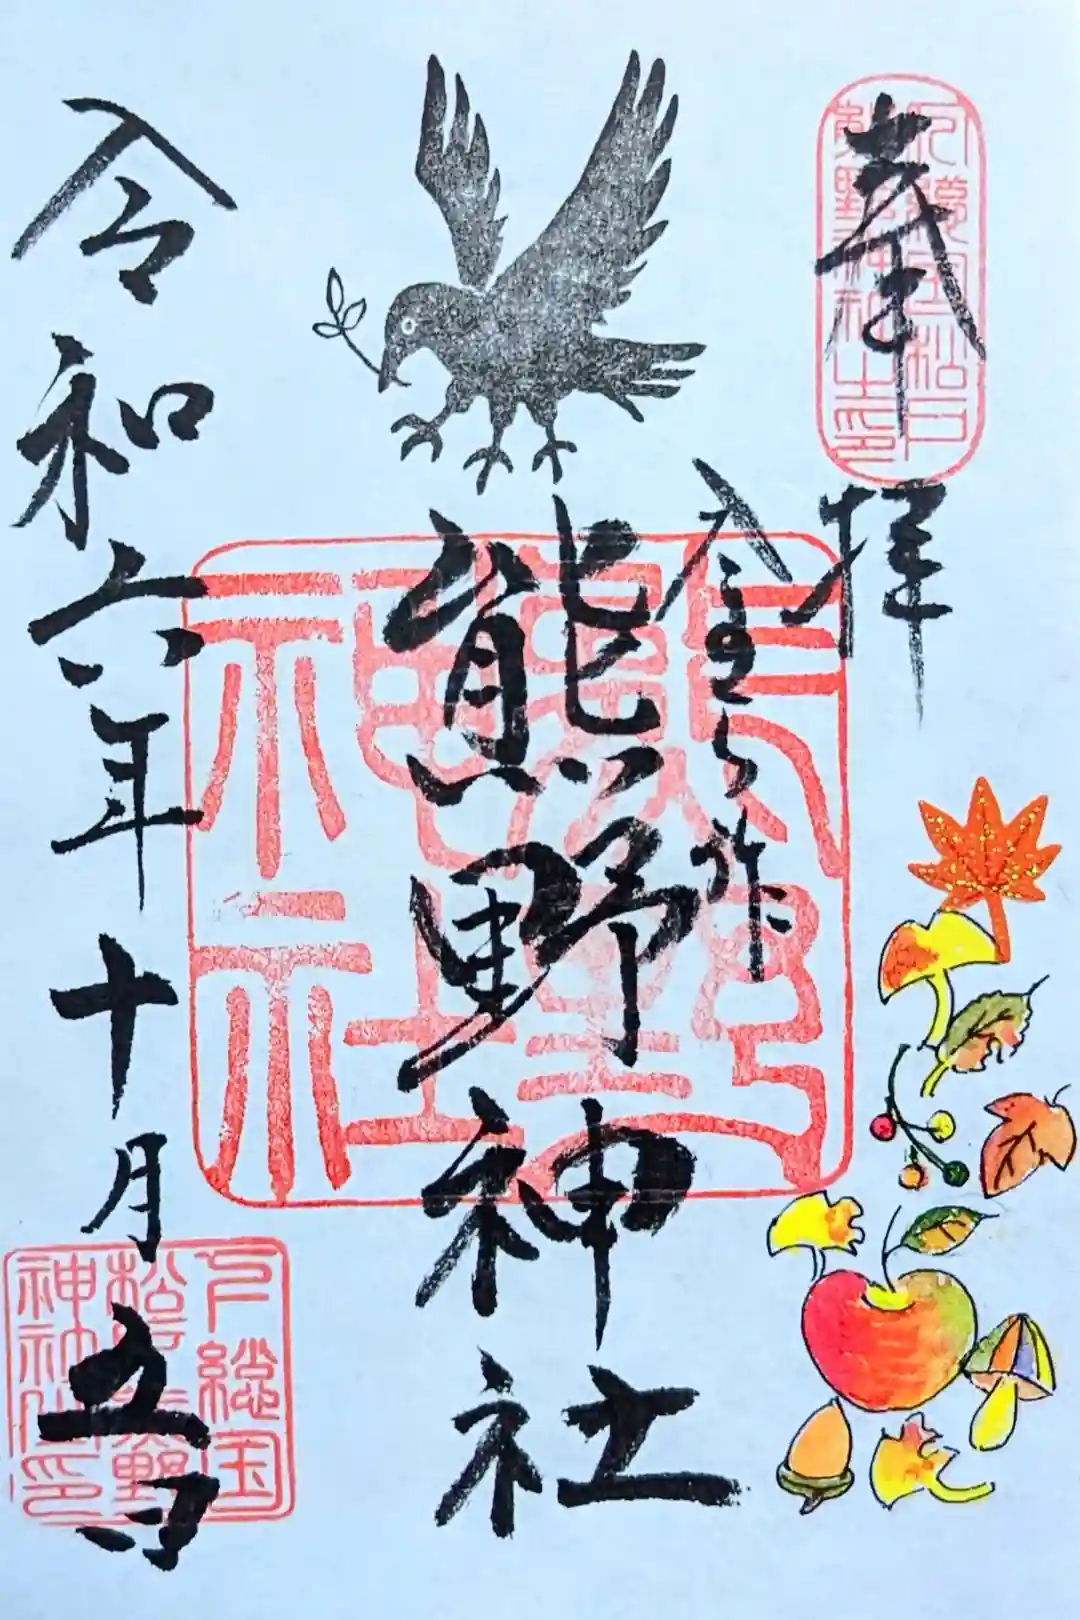 奉拝
金ケ作
熊野神社
令和六年十月五日
下総国松戸
熊野神社印
熊野神社
下総国
松戸熊野
神社印